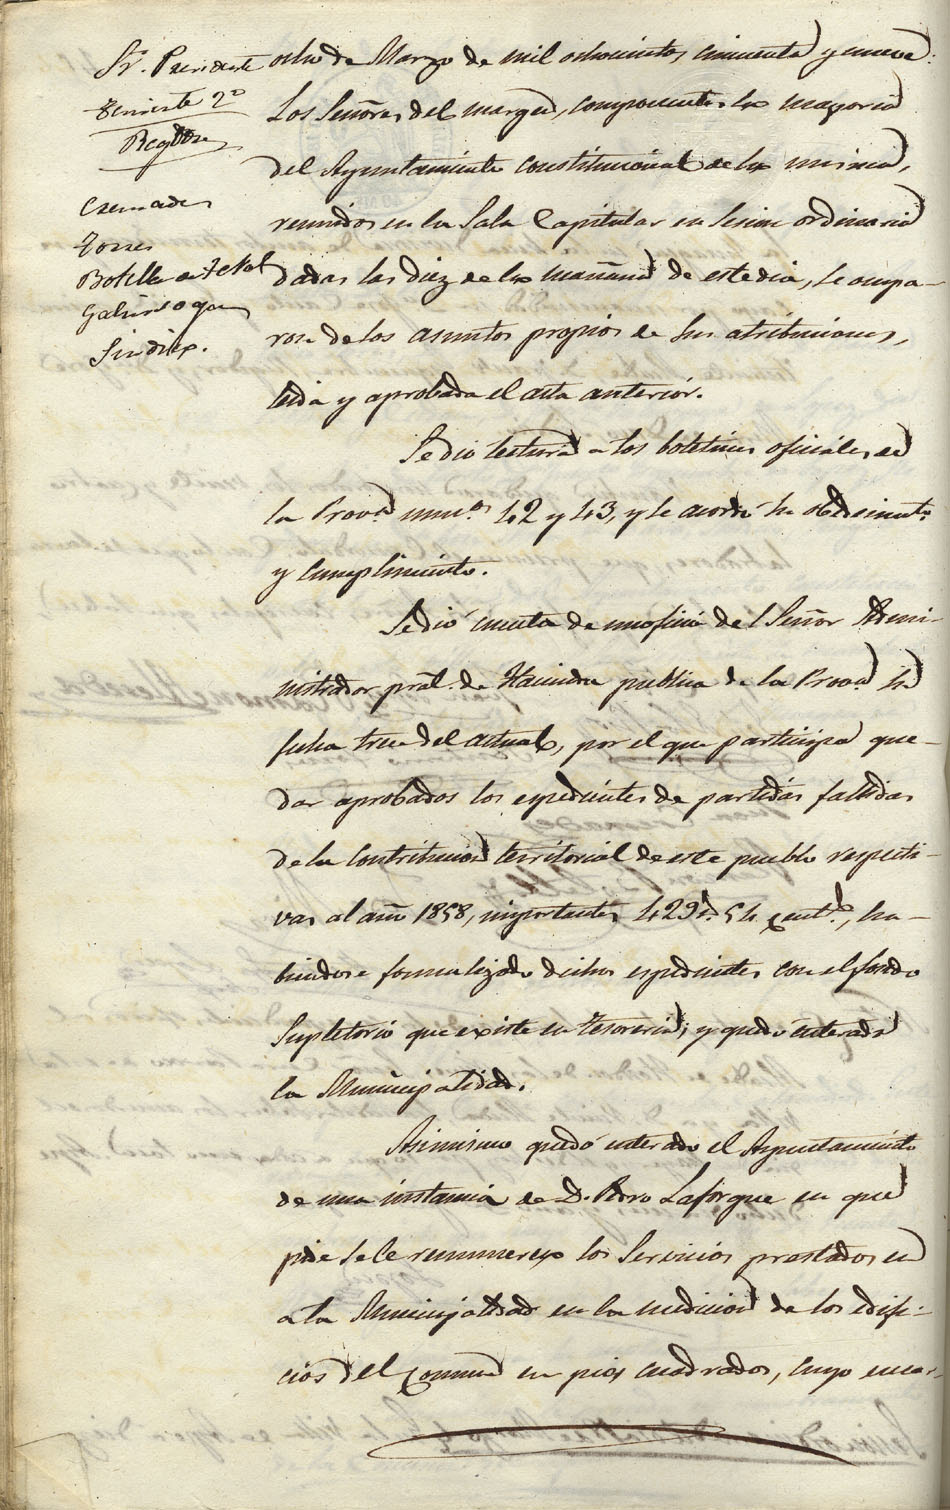 Sr. Presidente
Teniente 2º
Regidores
Cremades
Torres
Botella
Galiñsoga
Sindico.
ocho de Marzo de mil ochocientos cincuenta y nueve:
Los Señores del margen, componentes la mayoria
del Ayuntamiento constitucional de la misma,
reunidos en la Sala Capitular en Sesion ordinaria
dadas las diez de la mañana de este dia, se ocupa-
ron de los asuntos propios de sus atribuciones,
leida y aprobada el acta anterior.
Se dio lectura a los boletines oficiales de
la Prova. numos. 42 y 43, y se acordó su obedecimto.
y cumplimiento.
Se dió cuenta de un oficio del Señor Admi-
nistrador pral. de Hacienda publica de la Prova. su
fecha trece del actual, por el que participa que-
dar aprobados los espedientes de partidas fallidas
de la Contribucion territorial de este pueblo respecti-
vas al año 1858, importantes 429 rs. 54 cents., ha-
biendose formalizado dichos espedientes con el fondo
Supletorio que existe en Tesoreria, y quedó enterada
la Municipalidad.
Asimismo quedó enterado el Ayuntamiento
de una instancia de D. Pedro Laforgue en que
pide se le remunere los Servicios prestados
a la Municipalidad en la medicion de los edifi-
cios del Comun en pies cuadrados, cuyo encar-